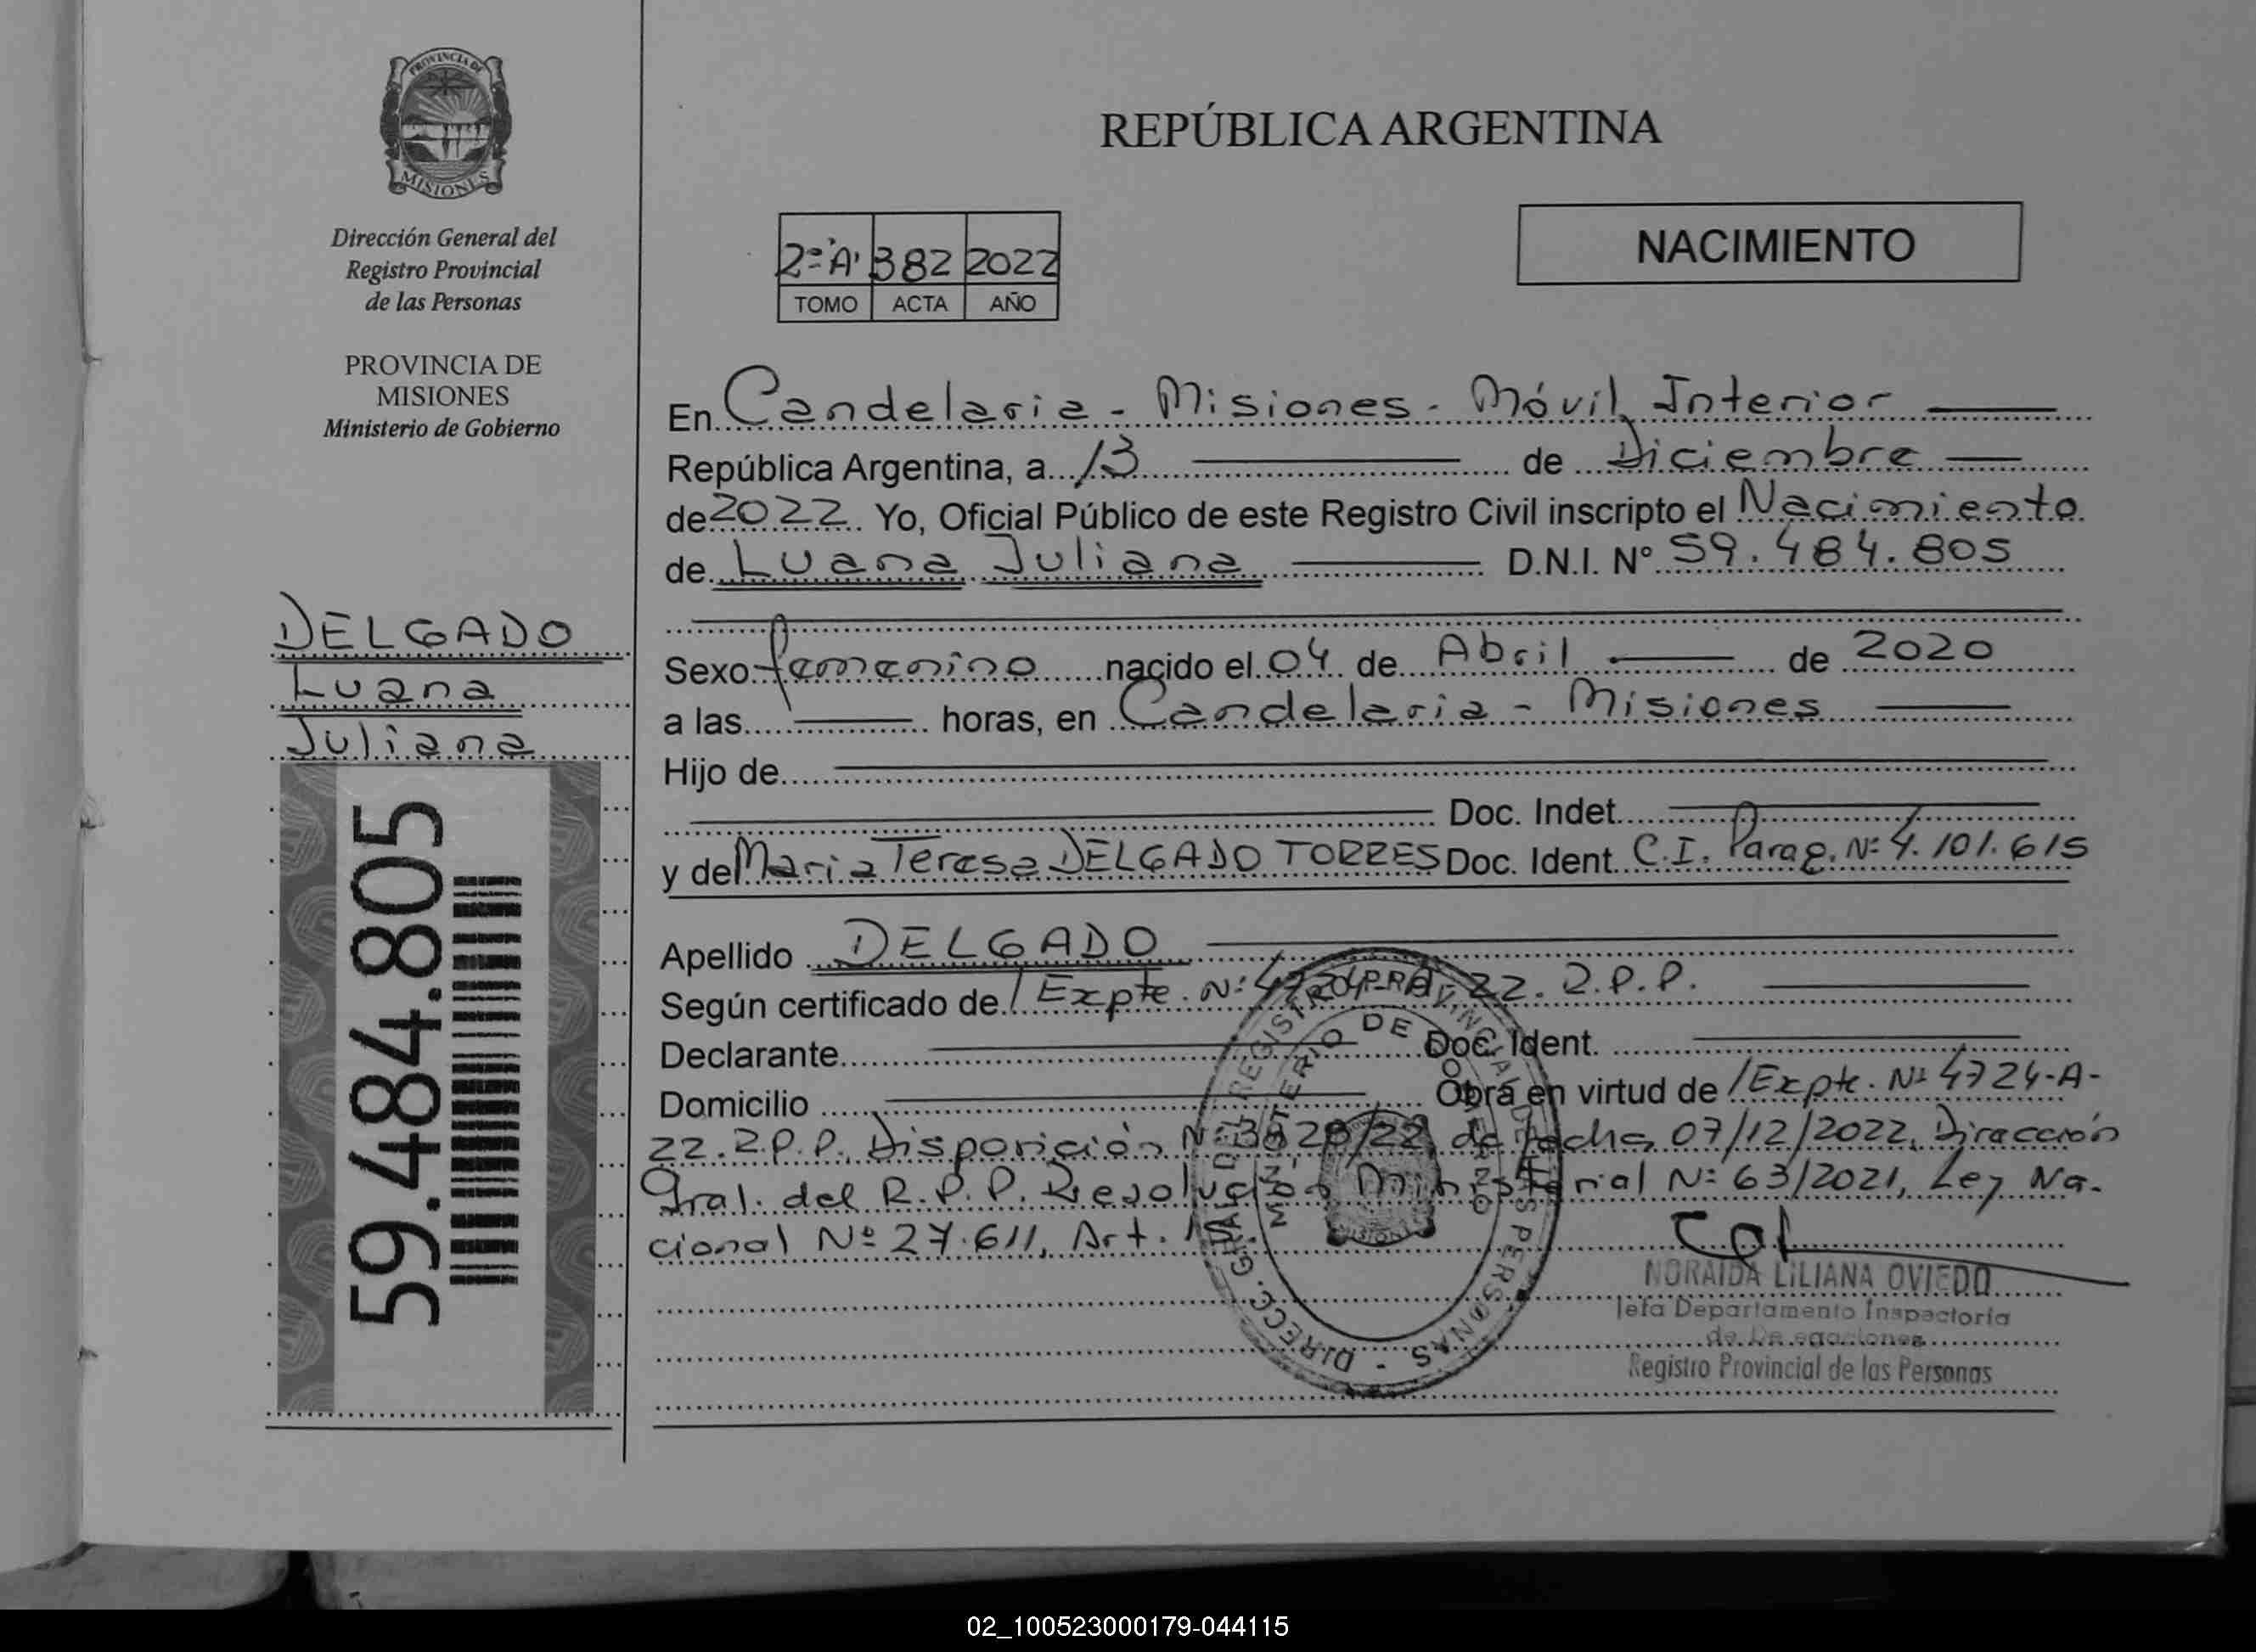 PROVINCIA DE
MISIONES
Dirección General del
Registro Provincial
de las Personas
PROVINCIA DE
MISIONES
Ministerio de Gobierno
DELGADO
Luana
Juliana
59.484.805
REPÚBLICA ARGENTINA
NACIMIENTO
2º "A" 382 2022
TOMO ACTA AÑO
En Candelaria - Misiones - Móvil Interior
República Argentina, a 13 de Diciembre
de 2022. Yo, Oficial Público de este Registro Civil inscripto el Nacimiento
de Luana Juliana D.N.I. N° 59.484.805
Sexo femenino nacido el 04 de Abril de 2020
a las horas, en Candelaria - Misiones
Hijo de
Doc. Indet.
y de Maria Teresa DELGADO TORRES Doc. Ident. C.I. Parag. Nº 4.101.615
Apellido DELGADO
Según certificado de / Expte. Nº 4724-A-22. R.P.P.
Declarante Doc. Ident.
Domicilio Obra en virtud de / Expte. Nº 4724-A-
22. R.P.P. Disposición Nº de fecha 07/12/2022, Dirección
Gral. del R.P.P. Resolución Ministerial Nº 63/2021, Ley Na-
cional Nº 27.611, Art.
DIRECC. GRAL. DEL REGISTRO PROVINCIAL DE LAS PERSONAS -
MINISTERIO DE GOBIERNO
NORAIDA LILIANA OVIEDO
Jefa Departamento Inspectoría
de Delegaciones
Registro Provincial de las Personas
02_100523000179-044115